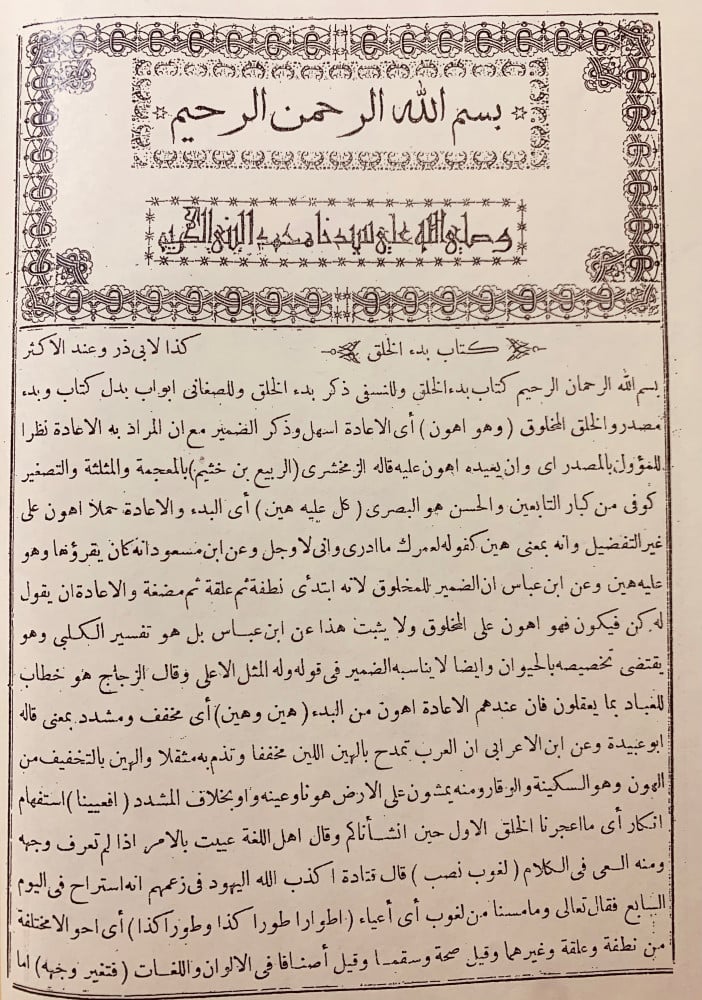 بسم الله الرحمن الرحيم
وصلى الله على سيدنا محمد النبى الكريم
كتاب بدء الخلق كذا لابى ذر وعند الاكثر
بسم الله الرحمان الرحيم كتاب بدء الخلق وللنسفى ذكر بدء الخلق وللصغانى ابواب بدل كتاب وبدء
مصدر والخلق المخلوق (وهو اهون) أى الاعادة اسهل وذكر الضمير مع ان المراد به الاعادة نظرا
للمؤول بالمصدر اى وان يعيده اهون عليه قاله الزمخشرى (الربيع بن خثيم) بالمعجمة والمثلثة والتصغير
كوفى من كبار التابعين والحسن هو البصرى (كل عليه هين) أى البدء والاعادة حملا اهون على
غير التفضيل وانه بمعنى هين كقوله لعمرك ما ادرى وانى لاوجل وعن ابن مسعود انه كان يقرؤها وهو
عليه هين وعن ابن عباس ان الضمير للمخلوق لانه ابتدئ نطفة ثم علقة ثم مضغة والاعادة ان يقول
له كن فيكون فهو اهون على المخلوق ولا يثبت هذا عن ابن عباس بل هو تفسير الكلبى وهو
يقتضى تخصيصه بالحيوان وايضا لا يناسبه الضمير فى قوله وله المثل الاعلى وقال الزجاج هو خطاب
للعباد بما يعقلون فان عندهم الاعادة اهون من البدء (هين وهين) أى مخفف ومشدد بمعنى قاله
ابو عبيدة وعن ابن الاعرابى ان العرب تمدح بالهين اللين مخففا وتذم به مثقلا والهين بالتخفيف من
الهون وهو السكينة والوقار ومنه يمشون على الارض هونا وعينه واو بخلاف المشدد (افعيينا) استفهام
انكار أى ما اعجزنا الخلق الاول حين انشأناكم وقال اهل اللغة عييت بالامر اذا لم تعرف وجهه
ومنه العى فى الكلام (لغوب نصب) قال قتادة اكذب الله اليهود فى زعمهم انه استراح فى اليوم
السابع فقال تعالى وما مسنا من لغوب أى أعياء (اطوارا طورا كذا وطورا كذا) أى احوالا مختلفة
من نطفة وعلقة وغيرهما وقيل صحة وسقما وقيل أصنافا فى الالوان واللغات (فتغير وجهه) اما